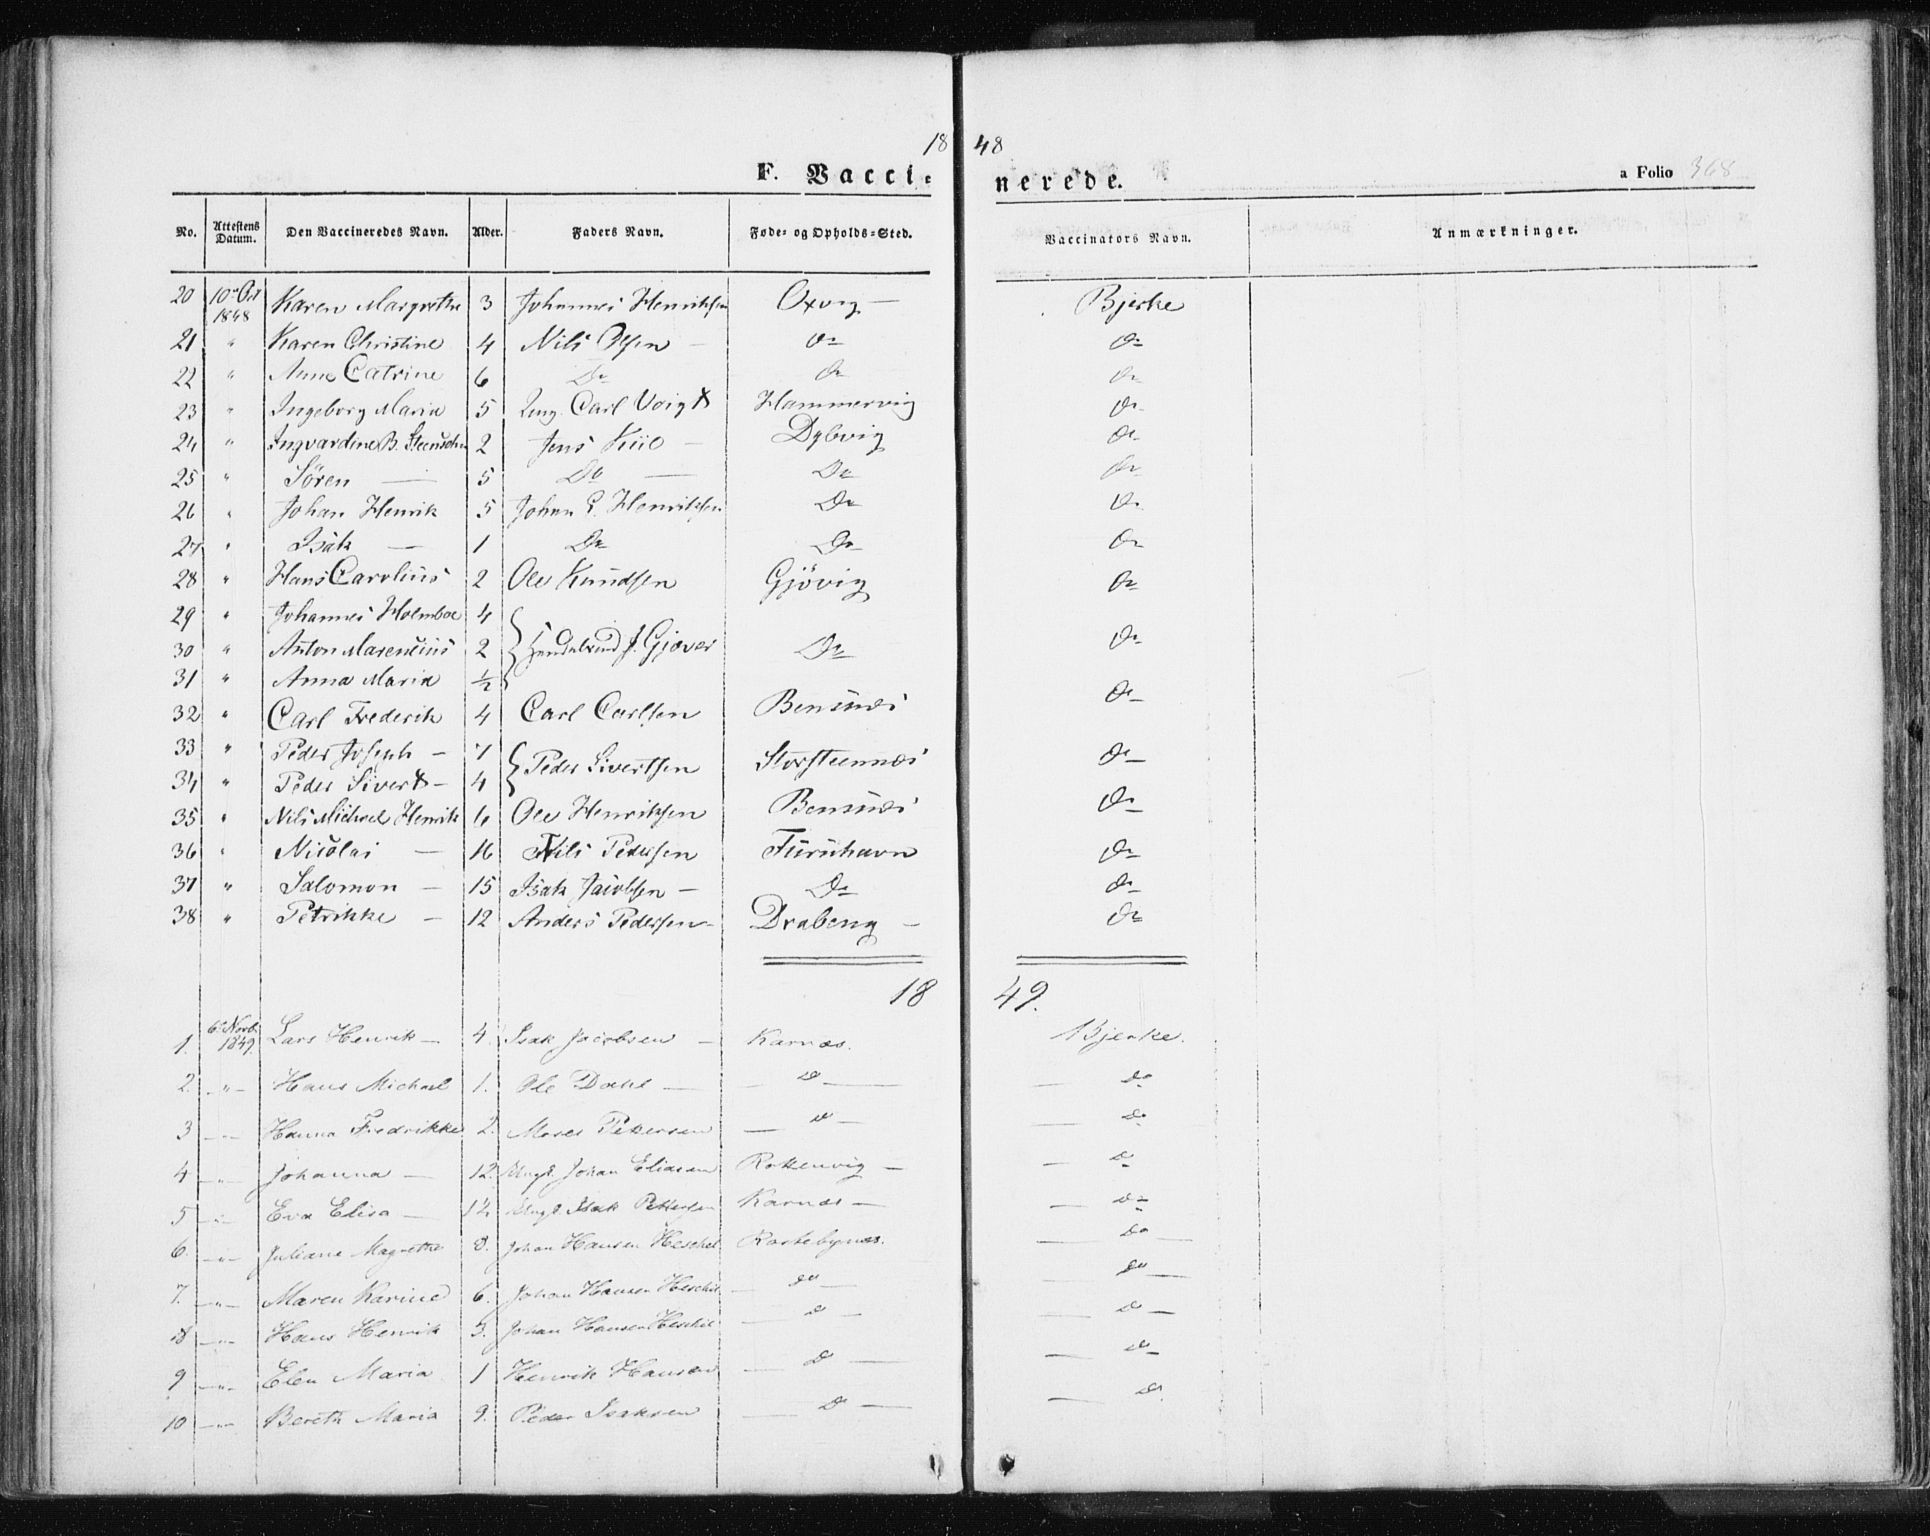 18 48
F. Vacci- nerede. a Folio 368
No. Attestens Datum. Den Vaccineredes Navn. Alder. Faders Navn. Føde- og Opholds-Sted. Vaccinators Navn. Anmærkninger.
20 10 Oct 1848 Karen Margrethe 3 Johannes Henriksen Oxvig — Bjerke
21 " Karen Christine 4 Nils Olsen — Do Do
22 " Anne Catrine 6 Do Do Do
23 " Ingeborg Maria 5 Ung. Carl Voigt Hammervig Do
24 " Ingvardine B. 2 Jens Kiil — Dybvig Do
25 " Sören — 5 Do — Do Do
26 " Johan Henrik 5 Johan P. Henriksen Do Do
27 " Isak — 1 Do Do Do
28 " Hans Carolius 2 Ole Knudsen Gjövig Do
29 " Johannes Holmboe 4
30 " Anton Marenius 2 J. Gjæver Do Do
31 " Anna Maria ½
32 " Carl Frederik 4 Carl Carlsen Bensnæs Do
33 " Peder Joseph — 7
34 " Peder Sivert — 4 Peder Sivertsen Storsteennæs Do
35 " Nils Michael Henrik 6 Ole Henriksen Bensnæs Do
36 " Nicolai — 16 Nils Pedersen Furuhavn Do
37 " Salomon — 15 Isak Jacobsen — Do Do
38 " Petrikke — 12 Anders Pedersen — Drabeng — Do
18 49.
1. 6 Novb. 1849. Lars Henrik — 4. Isak Jacobsen — Karnæs. Bjerke.
2. " Hans Michael 1. Ole Dahl — Do Do
3 " Hanna Fredrikke 2. Moses Petersen Do Do
4 " Johanna — 12. Ungk. Johan Eliasen Rottenvig — Do
5 " Eva Elisa — 12 Ungk. Isak Pettersen Karnæs — Do
6. " Juliane Magrethe 8. Johan Hansen Heschel Kartebynæs. Do
7. " Maren Karine 6. Johan Hansen Heschel Do Do
8 " Hans Henrik 3. Johan Hansen Heschel Do Do
9 " Elen Maria 1 Henrik Hansen Do Do
10 " Bereth Maria 9. Peder Isaksen Do Do